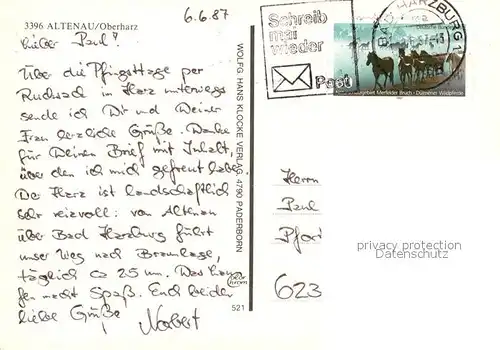 3396 ALTENAU/Oberharz
6.6.87
Lieber Paul!
Über die Pfingsttage per
Rucksack im Harz unterwegs
sende ich Dir und Deiner
Frau herzliche Grüße. Danke
für Deinen Brief mit Inhalt,
über den ich mich gefreut habe.
Der Harz ist landschaftlich
sehr reizvoll: von Altenau
über Bad Harzburg führt
unser Weg nach Braunlage,
täglich ca 25 km. Das Lau-
fen macht Spaß. Euch beiden
liebe Grüße
Norbert
WOLFG. HANS KLOCKE VERLAG 4790 PADERBORN
521
Schreib
mal
wieder
Post
BAD HARZBURG 1
Merfelder Bruch · Dülmener Wildpferde
Herrn
Paul
623
privacy protection
Datenschutz